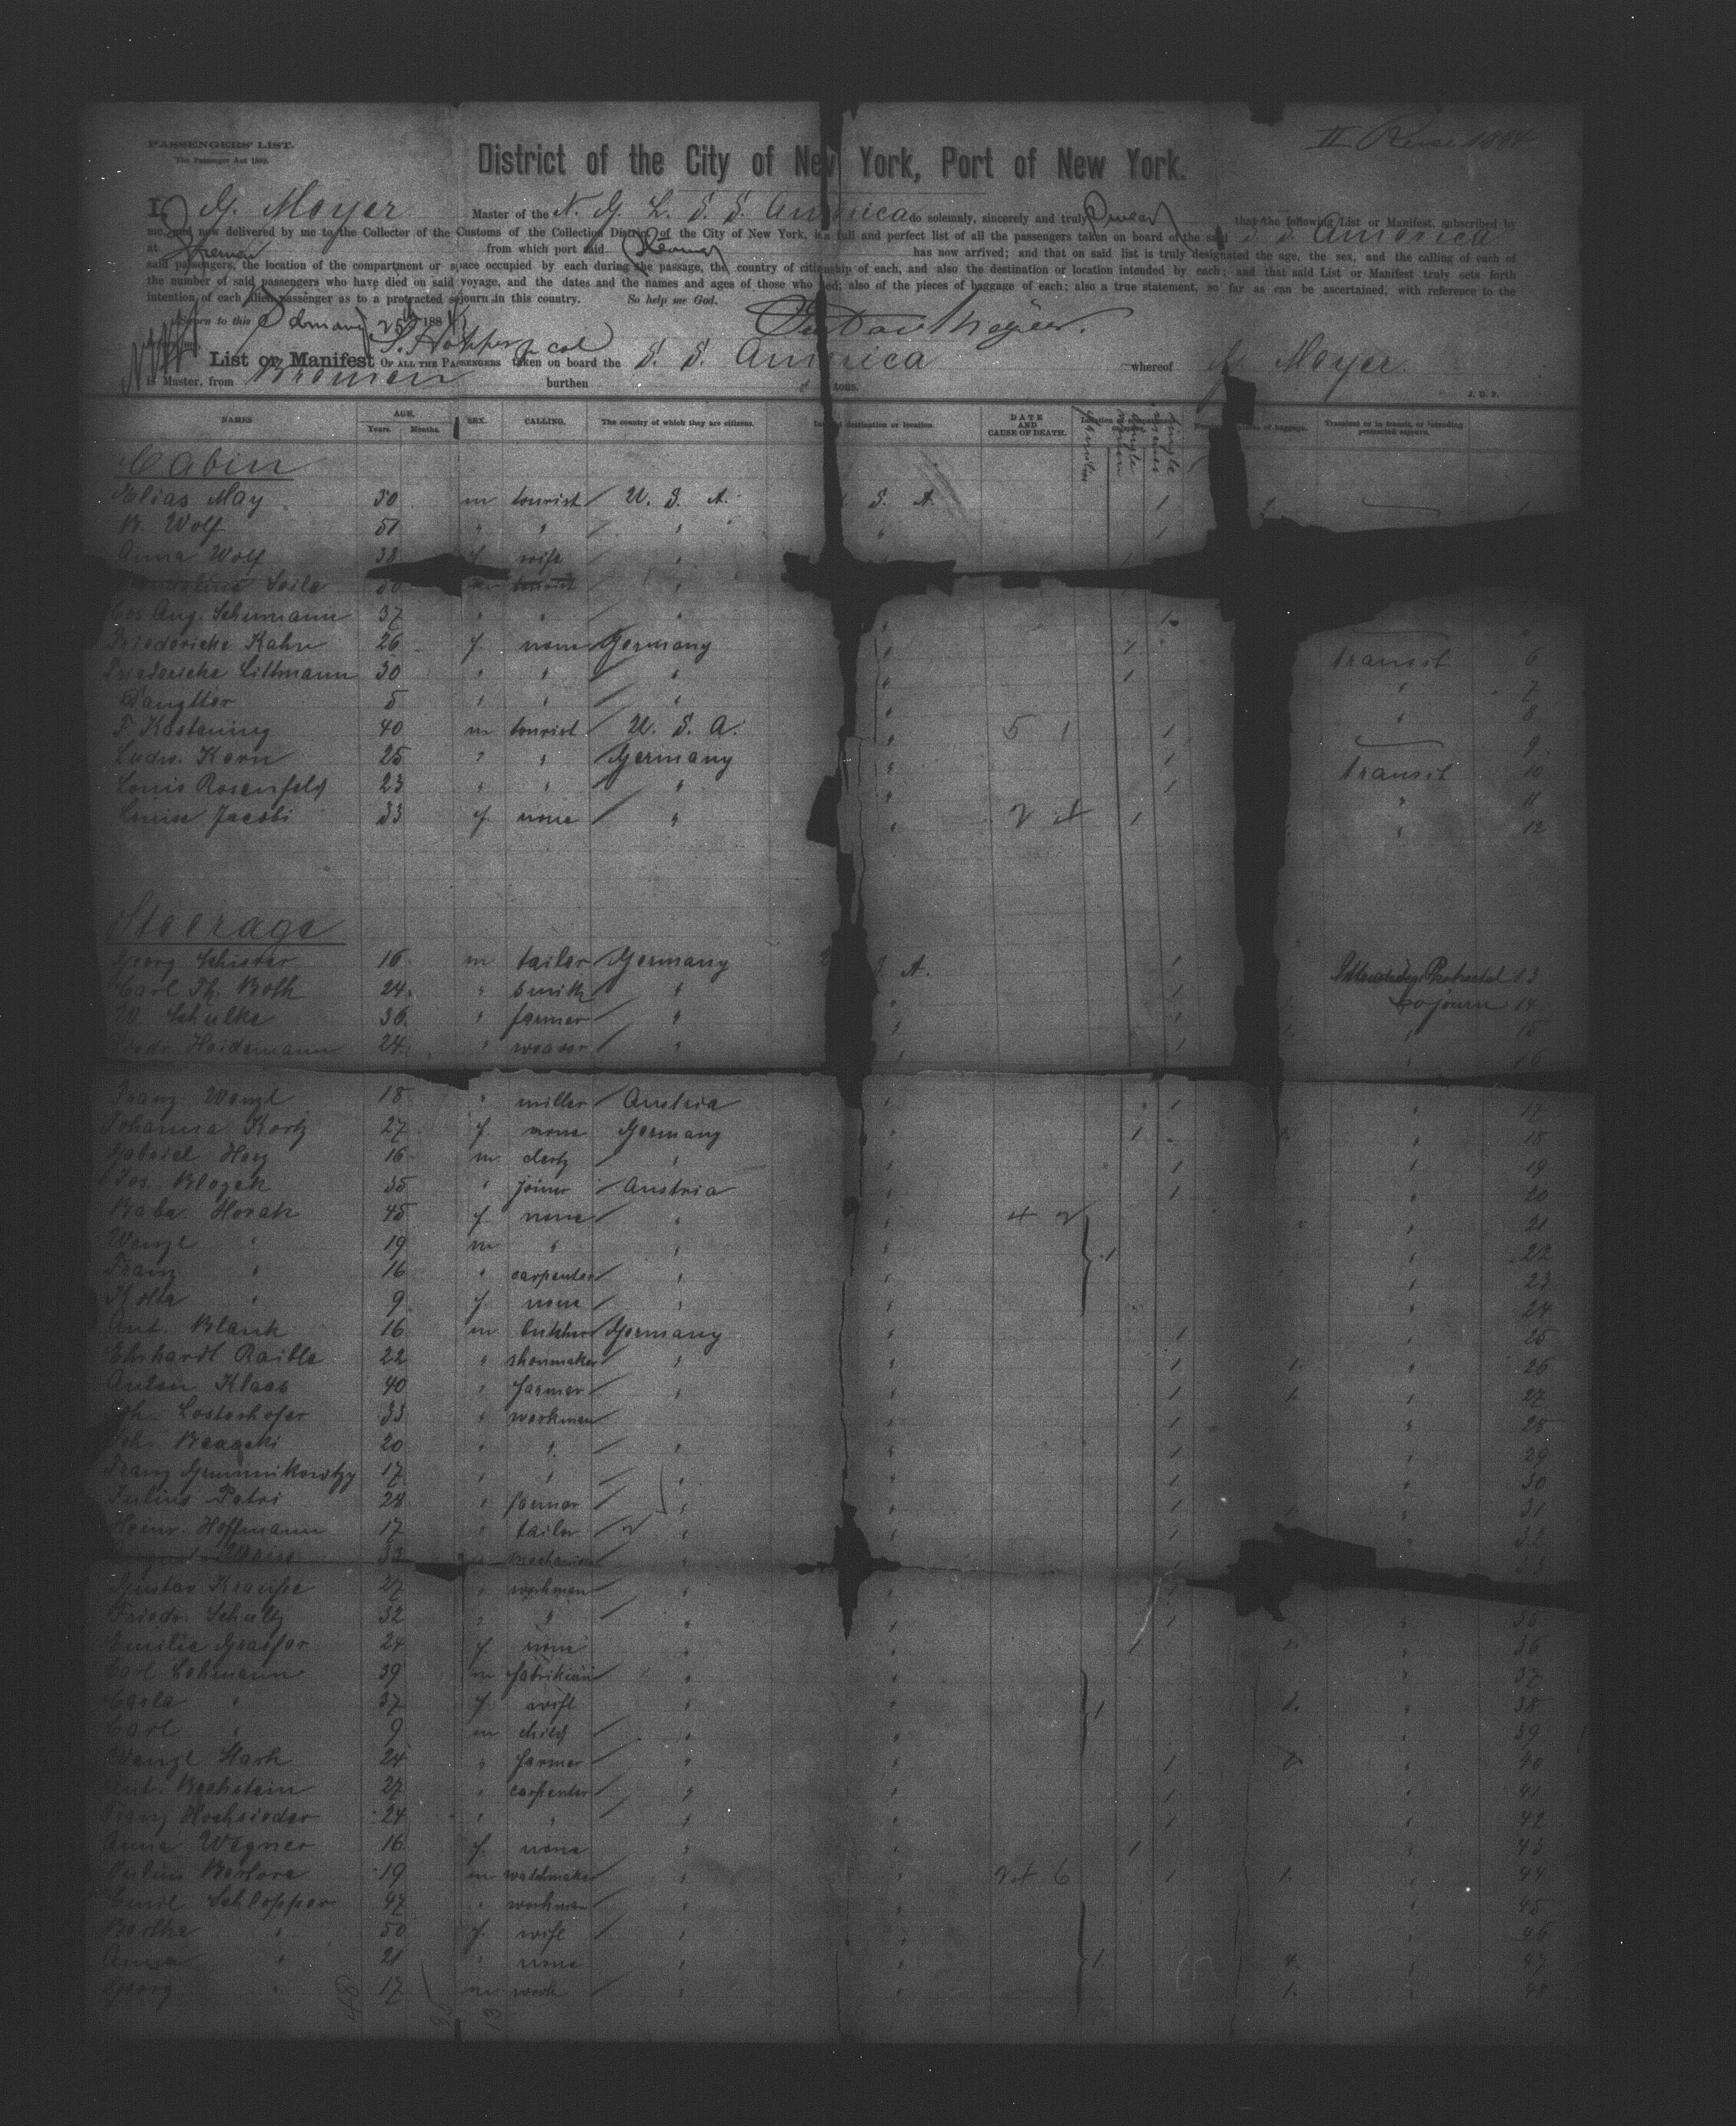 PASSENGERS' LIST.
II Reise 1884
The Passenger Act 1882.
District of the City of New York, Port of New York.
I, G. Meyer Master of the N. G. L. S. S. America do solemnly, sincerely and truly swear that the following List or Manifest, subscribed by
me, and now delivered by me to the Collector of the Customs of the Collection District of the City of New York, is a full and perfect list of all the passengers taken on board of the said S. S. America
at Bremen from which port said Steamer has now arrived; and that on said list is truly designated the age, the sex, and the calling of each of
said passengers, the location of the compartment or space occupied by each during the passage, the country of citizenship of each, and also the destination or location intended by each; and that said List or Manifest truly sets forth
the number of said passengers who have died on said voyage, and the dates and the names and ages of those who died; also of the pieces of baggage of each; also a true statement, so far as can be ascertained, with reference to the
intention of each alien passenger as to a protracted sojourn in this country. So help me God.
Sworn to this February 25th 1884
List or Manifest OF ALL THE PASSENGERS taken on board the S. S. America whereof G. Meyer
is Master, from Bremen burthen tons.
J. D. P.
NAMES AGE. Years. Months. SEX. CALLING. The country of which they are citizens. destination or location. DATE AND CAUSE OF DEATH. of baggage. Transient or in transit, or intending protracted sojourn.
Cabin
Elias May 30 m tourist U. S. A. S. A. 1
W. Wolf 51 " " " " 1
Anna Wolf 38 f wife "
Seile 30 m tourist "
Aug. Schumann 37 " " " " 1
Friedericke Kahn 26 f none Germany " 1 Transit 6
Friedericke Littmann 30 " " " " 1 " 7
Daughter 5 " " " " " 8
F. Kostening 40 m tourist U. S. A. " 5 1 1 9
Ludw. Kern 25 " " Germany " 1 Transit 10
Louis Rosenfeld 23 " " " " 1 " 11
Louise Jacobi 33 f none " " 1 " 12
Steerage
Georg Schister 16 m tailor Germany S. A. 1 Intending Protracted 13
Carl Th. Both 24 " smith " " 1 Sojourn 14
W. Schulke 36 " farmer " " 1 " 15
Friedr. Heidemann 24 " weaver " " 1 " 16
Franz Wenzl 18 " miller Austria " 1 " 17
Johanna Kortz 27 f none Germany " 1 " 18
Gabriel Herz 16 m clerk " " 1 " 19
Jos. Blazek 35 " joiner Austria " 1 " 20
Baba. Horak 45 f none " " 4 2 " 21
Wenzl " 19 m " " " 1 " 22
Franz " 16 " carpenter " " " 23
" 9 f none " " " 24
Ant. Blank 16 m butcher Germany " 1 " 25
Ehrhardt Raible 22 " shoemaker " " 1 1. " 26
Anton Klaas 40 " farmer " " 1 1. " 27
Joh. Losterhofer 33 " workman " 1 " 28
Joh. 20 " " " " 1 " 29
Franz 17 " " " " 1 " 30
Julius Petri 28 " farmer " " 1 " 31
Heinr. Hoffmann 17 " tailor " " 1 " 32
August Weiss 33 " mechanician " 33
Gustav Krause 27 " workman " " 1
Friedr. Schultz 32 " " " " 1 " 35
Emilie Graefer 24 f none " " 1 1. " 36
Carl Lehmann 39 m fabrikian " " " 37
Carla " 37 f wife " " 1 1. " 38
Carl " 9 m child " " " 39
Wenzl Mark 24 " farmer " " 1 2 " 40
Ant. Bechstein 27 " carpenter " " 1 " 41
Franz Hochsieder 24 " " " " 1 " 42
Anna Wegner 16 f none " " 1 " 43
Julius 19 m watchmaker " " 1 1. " 44
Emil Schlopper 47 " workman " " " 45
Bertha " 50 f wife " " " 46
Anna " 21 " none " " 1 4. " 47
Georg " 17 m work " " 1. " 48